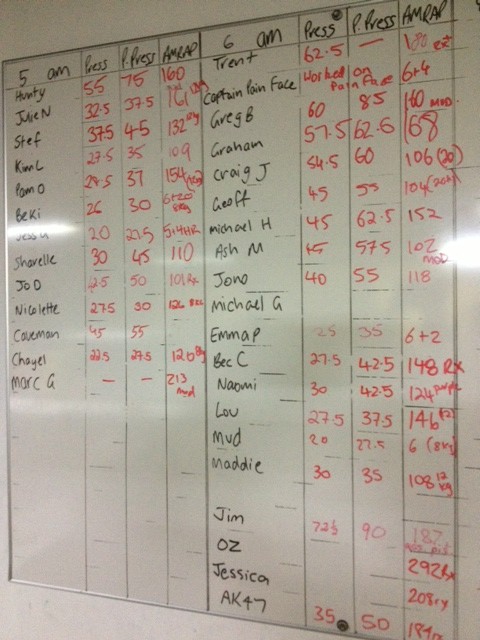 5 am Press P.Press AMRAP
Hunty 55 75 160
Julie N 32.5 37.5 161
Stef 37.5 45 132 kg
Kim L 27.5 35 109
Pam O 28.5 37 154
Beki 26 30 6+20 8kg
20
Sharelle 30 45 110
Jo D 50 101 Rx
Nicolette 27.5 30 126
Caveman 45 55
Chayel 22.5 27.5 120 kg
Marc G — — 213 mod
6 am Press P.Press AMRAP
Trent 62.5 — 180
Captain Pain Face Worked on Pain Face 6+4
Greg B 60 85 160 mod
Graham 57.5 62.6 168
Craig J 54.5 60 106 (20)
Geoff 45 55 104
Michael H 45 62.5 152
Ash M 45 57.5 102 mod
Jono 40 55 118
Michael G
Emma P 25 35 6+2
Bec C 27.5 42.5 148 Rx
Naomi 30 42.5 124 purple
Lou 27.5 37.5 146 (12)
Mud 20 27.5 6 (8kg)
Maddie 30 35 108 12 kg
Jim 72.5 90 187
OZ 292 Rx
Jessica 208 rx
AK47 35 50 184 rx